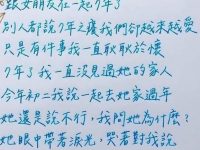 跟女朋友在一起7年了
別人都說7年之癢我們卻越來越愛
只是有件事我一直耿耿於懷
7年了我一直沒見過她的家人
今年初二我說一起去她家過年
她還是說不行,我問她為什麼?
她眼中帶著淚光,哭著對我說